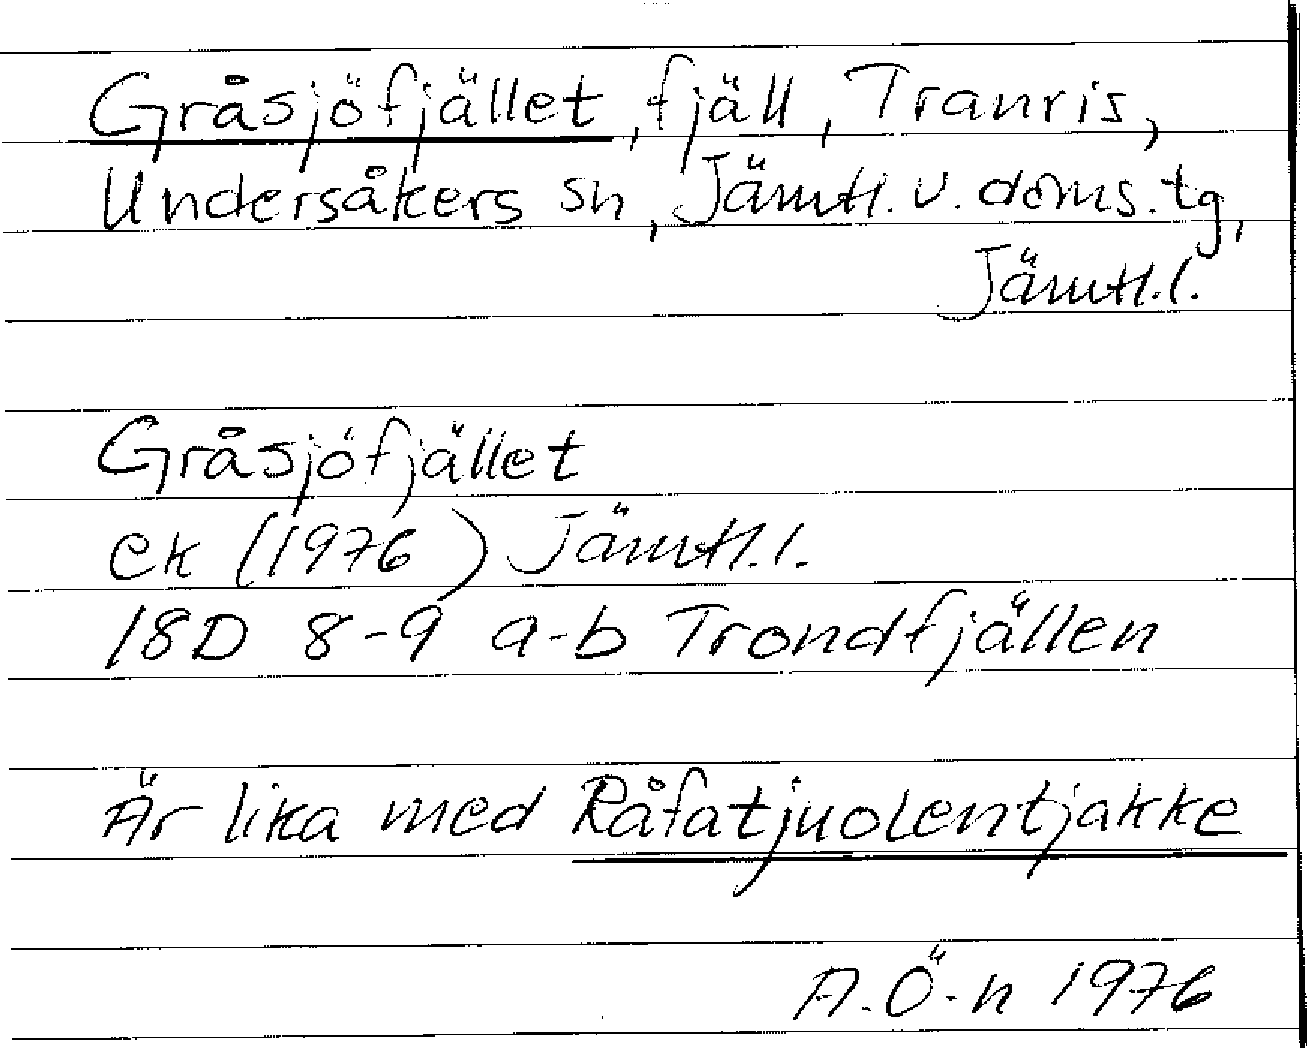 Gråsjöfjället, fjäll, Tranris,
Undersåkers sn, Jämtl. v. doms. tg,
Jämtl. l.
Gråsjöfjället
ek (1976) Jämtl. l.
18D 8-9 a-b Trondfjällen
Är lika med Råfatjuolentjakke
A. Ö-n 1976